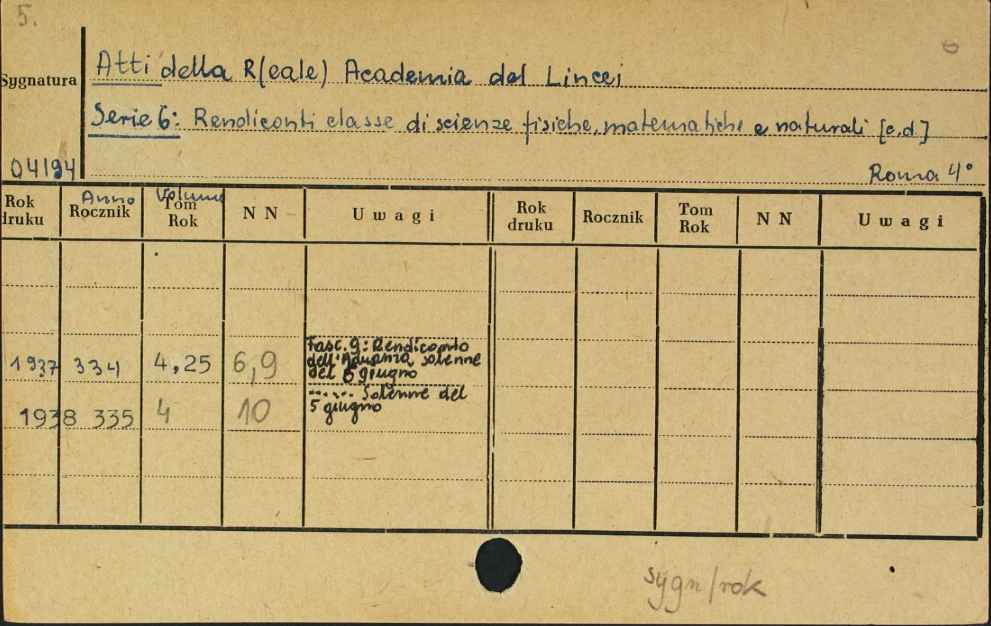 5.
Sygnatura
Atti della R(eale) Academia del Lincei
Serie 6: Rendiconti classe di scienze fisiche, matematiche e naturali [c.d]
04194
Roma 4°
Rok druku Anno Rocznik Volume Tom Rok N N Uwagi Rok druku Rocznik Tom Rok N N Uwagi
1937 334 4, 25 6,9 Fasc. 9: Rendiconto
dell'Adunanza solenne
del 6 giugno
1938 335 4 10 ...... Solenne del
5 giugno
sygn/rok